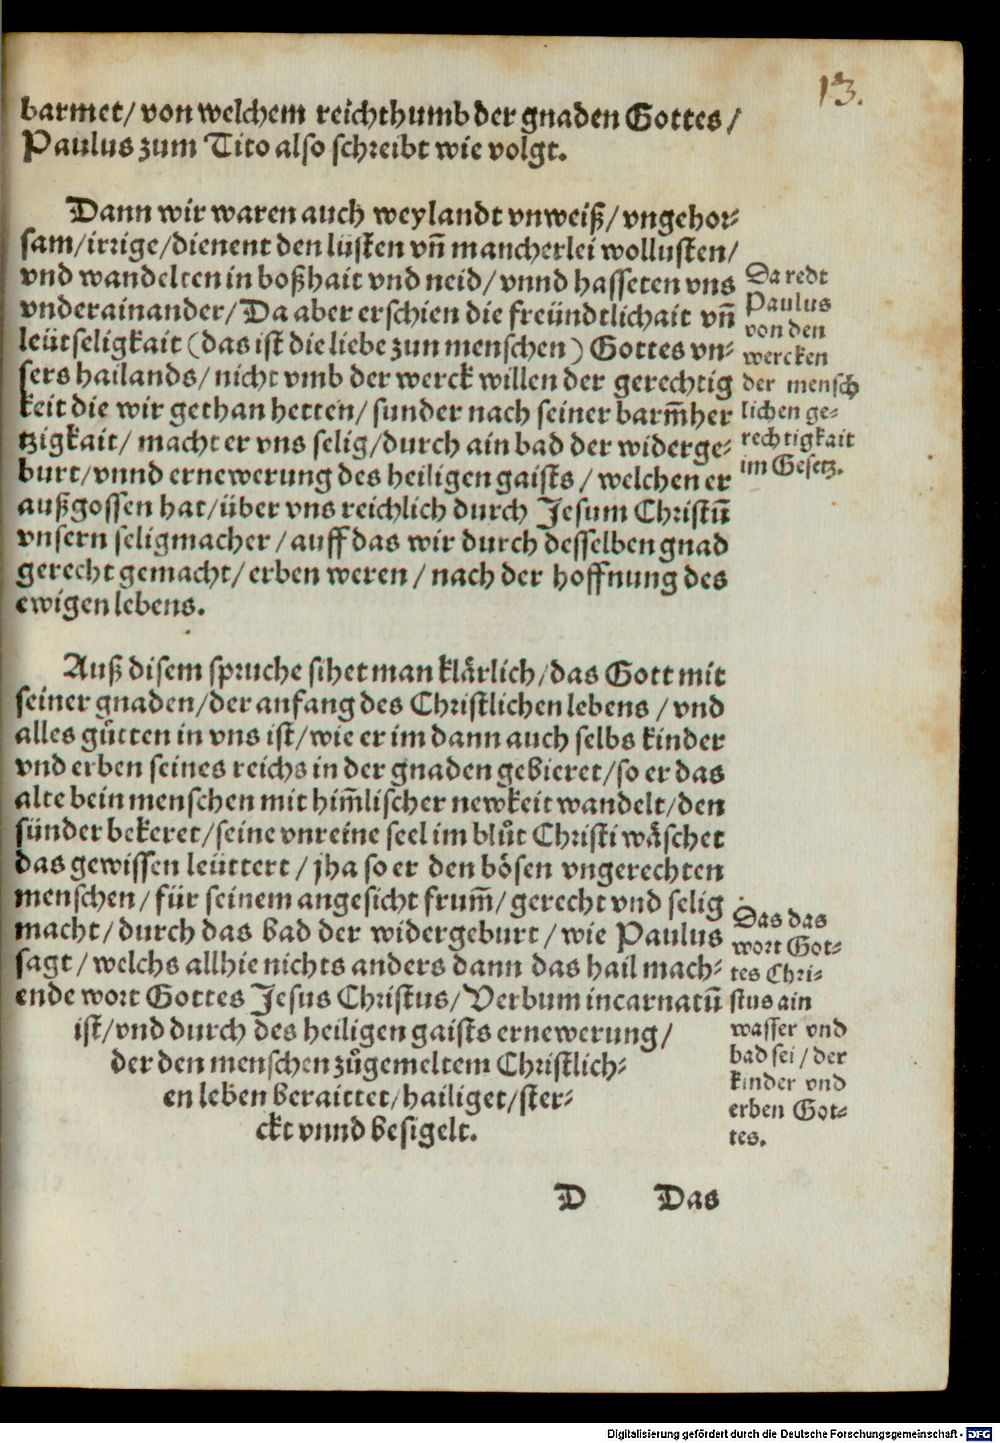 13.
barmet/ von welchem reichthumb der gnaden Gottes/
Paulus zum Tito also schreibt wie volgt.
Dann wir waren auch weylandt vnweiß/ vngehor-
sam/ irrige/ dienent den lüsten vñ mancherlei wollusten/
vnd wandelten in boßhait vnd neid/ vnnd hasseten vns
vnderainander/ Da aber erschien die freündtlichait vñ
leütseligkait (das ist die liebe zun menschen) Gottes vn-
sers hailands/ nicht vmb der werck willen der gerechtig
keit die wir gethan hetten/ sunder nach seiner barm̃her
tzigkait/ macht er vns selig/ durch ain bad der widerge-
burt/ vnnd ernewerung des heiligen gaists/ welchen er
außgossen hat/ über vns reichlich durch Jesum Christũ
vnsern seligmacher/ auff das wir durch desselben gnad
gerecht gemacht/ erben weren/ nach der hoffnung des
ewigen lebens.
Da redt
Paulus
von den
wercken
der mensch
lichen ge-
rechtigkait
im Gesetz.
Auß disem spruche sihet man klärlich/ das Gott mit
seiner gnaden/ der anfang des Christlichen lebens/ vnd
alles gůtten in vns ist/ wie er im dann auch selbs kinder
vnd erben seines reichs in der gnaden gebieret/ so er das
alte bein menschen mit him̃lischer newkeit wandelt/ den
sünder bekeret/ seine vnreine seel im blůt Christi wäschet
das gewissen leüttert/ jha so er den bösen vngerechten
menschen/ für seinem angesicht frum̃/ gerecht vnd selig
macht/ durch das bad der widergeburt/ wie Paulus
sagt/ welchs allhie nichts anders dann das hail mach-
ende wort Gottes Jesus Christus/ Verbum incarnatũ
ist/ vnd durch des heiligen gaists ernewerung/
der den menschen zůgemeltem Christlich-
en leben beraittet/ hailiget/ ster-
ckt vnnd besigelt.
Das das
wort Got-
tes Chri-
stus ain
wasser vnd
bad sei/ der
kinder vnd
erben Got-
tes.
D Das
Digitalisierung gefördert durch die Deutsche Forschungsgemeinschaft - DFG